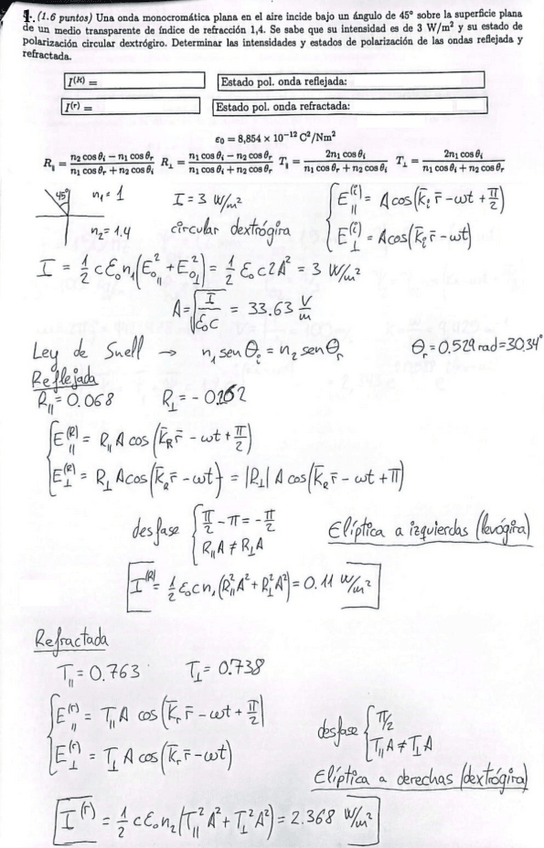 1. (1.6 puntos) Una onda monocromática plana en el aire incide bajo un ángulo de 45° sobre la superficie plana
de un medio transparente de índice de refracción 1,4. Se sabe que su intensidad es de 3 W/m² y su estado de
polarización circular dextrógiro. Determinar las intensidades y estados de polarización de las ondas reflejada y
refractada.
I^(R) = Estado pol. onda reflejada:
I^(r) = Estado pol. onda refractada:
ε₀ = 8,854 × 10⁻¹² C²/Nm²
R∥ = (n₂ cos θᵢ − n₁ cos θᵣ)/(n₁ cos θᵣ + n₂ cos θᵢ) R⊥ = (n₁ cos θᵢ − n₂ cos θᵣ)/(n₁ cos θᵢ + n₂ cos θᵣ) T∥ = 2n₁ cos θᵢ/(n₁ cos θᵣ + n₂ cos θᵢ) T⊥ = 2n₁ cos θᵢ/(n₁ cos θᵢ + n₂ cos θᵣ)
45° n₁ = 1 I = 3 W/m² E∥^(i) = A cos(k̄ᵢ r̄ − ωt + π/2)
n₂ = 1.4 circular dextrógira E⊥^(i) = A cos(k̄ᵢ r̄ − ωt)
I = 1/2 c ε₀ n₁ (E₀∥² + E₀⊥²) = 1/2 ε₀ c 2A² = 3 W/m²
A = √(I/(ε₀c)) = 33.63 V/m
Ley de Snell → n₁ sen θᵢ = n₂ sen θᵣ θᵣ = 0.529 rad = 30.34°
Reflejada
R∥ = 0.068 R⊥ = −0.262
E∥^(R) = R∥ A cos(k̄_R r̄ − ωt + π/2)
E⊥^(R) = R⊥ A cos(k̄_R r̄ − ωt) = |R⊥| A cos(k̄_R r̄ − ωt + π)
desfase { π/2 − π = −π/2 Elíptica a izquierdas (levógira)
R∥A ≠ R⊥A
I^(R) = 1/2 ε₀ c n₁ (R∥²A² + R⊥²A²) = 0.11 W/m²
Refractada
T∥ = 0.763 T⊥ = 0.738
E∥^(r) = T∥ A cos(k̄ᵣ r̄ − ωt + π/2)
E⊥^(r) = T⊥ A cos(k̄ᵣ r̄ − ωt)
desfase { π/2
T∥A ≠ T⊥A
Elíptica a derechas (dextrógira)
I^(r) = 1/2 c ε₀ n₂ (T∥² A² + T⊥² A²) = 2.368 W/m²